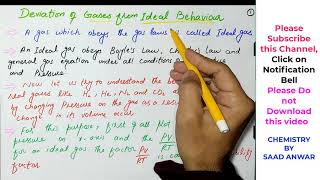 Deviation of Gases from Ideal Behaviour
①
A gas which obeys the gas laws is called Ideal gas
An Ideal gas obeys Boyle's Law, Law and
general gas equation under all conditions of
and Pressure
Now let us try to understand the
real gases like H₂, He, N₂ and CO₂
by changing Pressure on the gas as a
change in its volume occur.
For this purpose, first g all plot
pressure on x-axis and the PV/RT
for an ideal gas the factor PV/RT is
factor
Please
Subscribe
this Channel,
Click on
Notification
Bell
Please Do
not
Download
this video
CHEMISTRY
BY
SAAD ANWAR